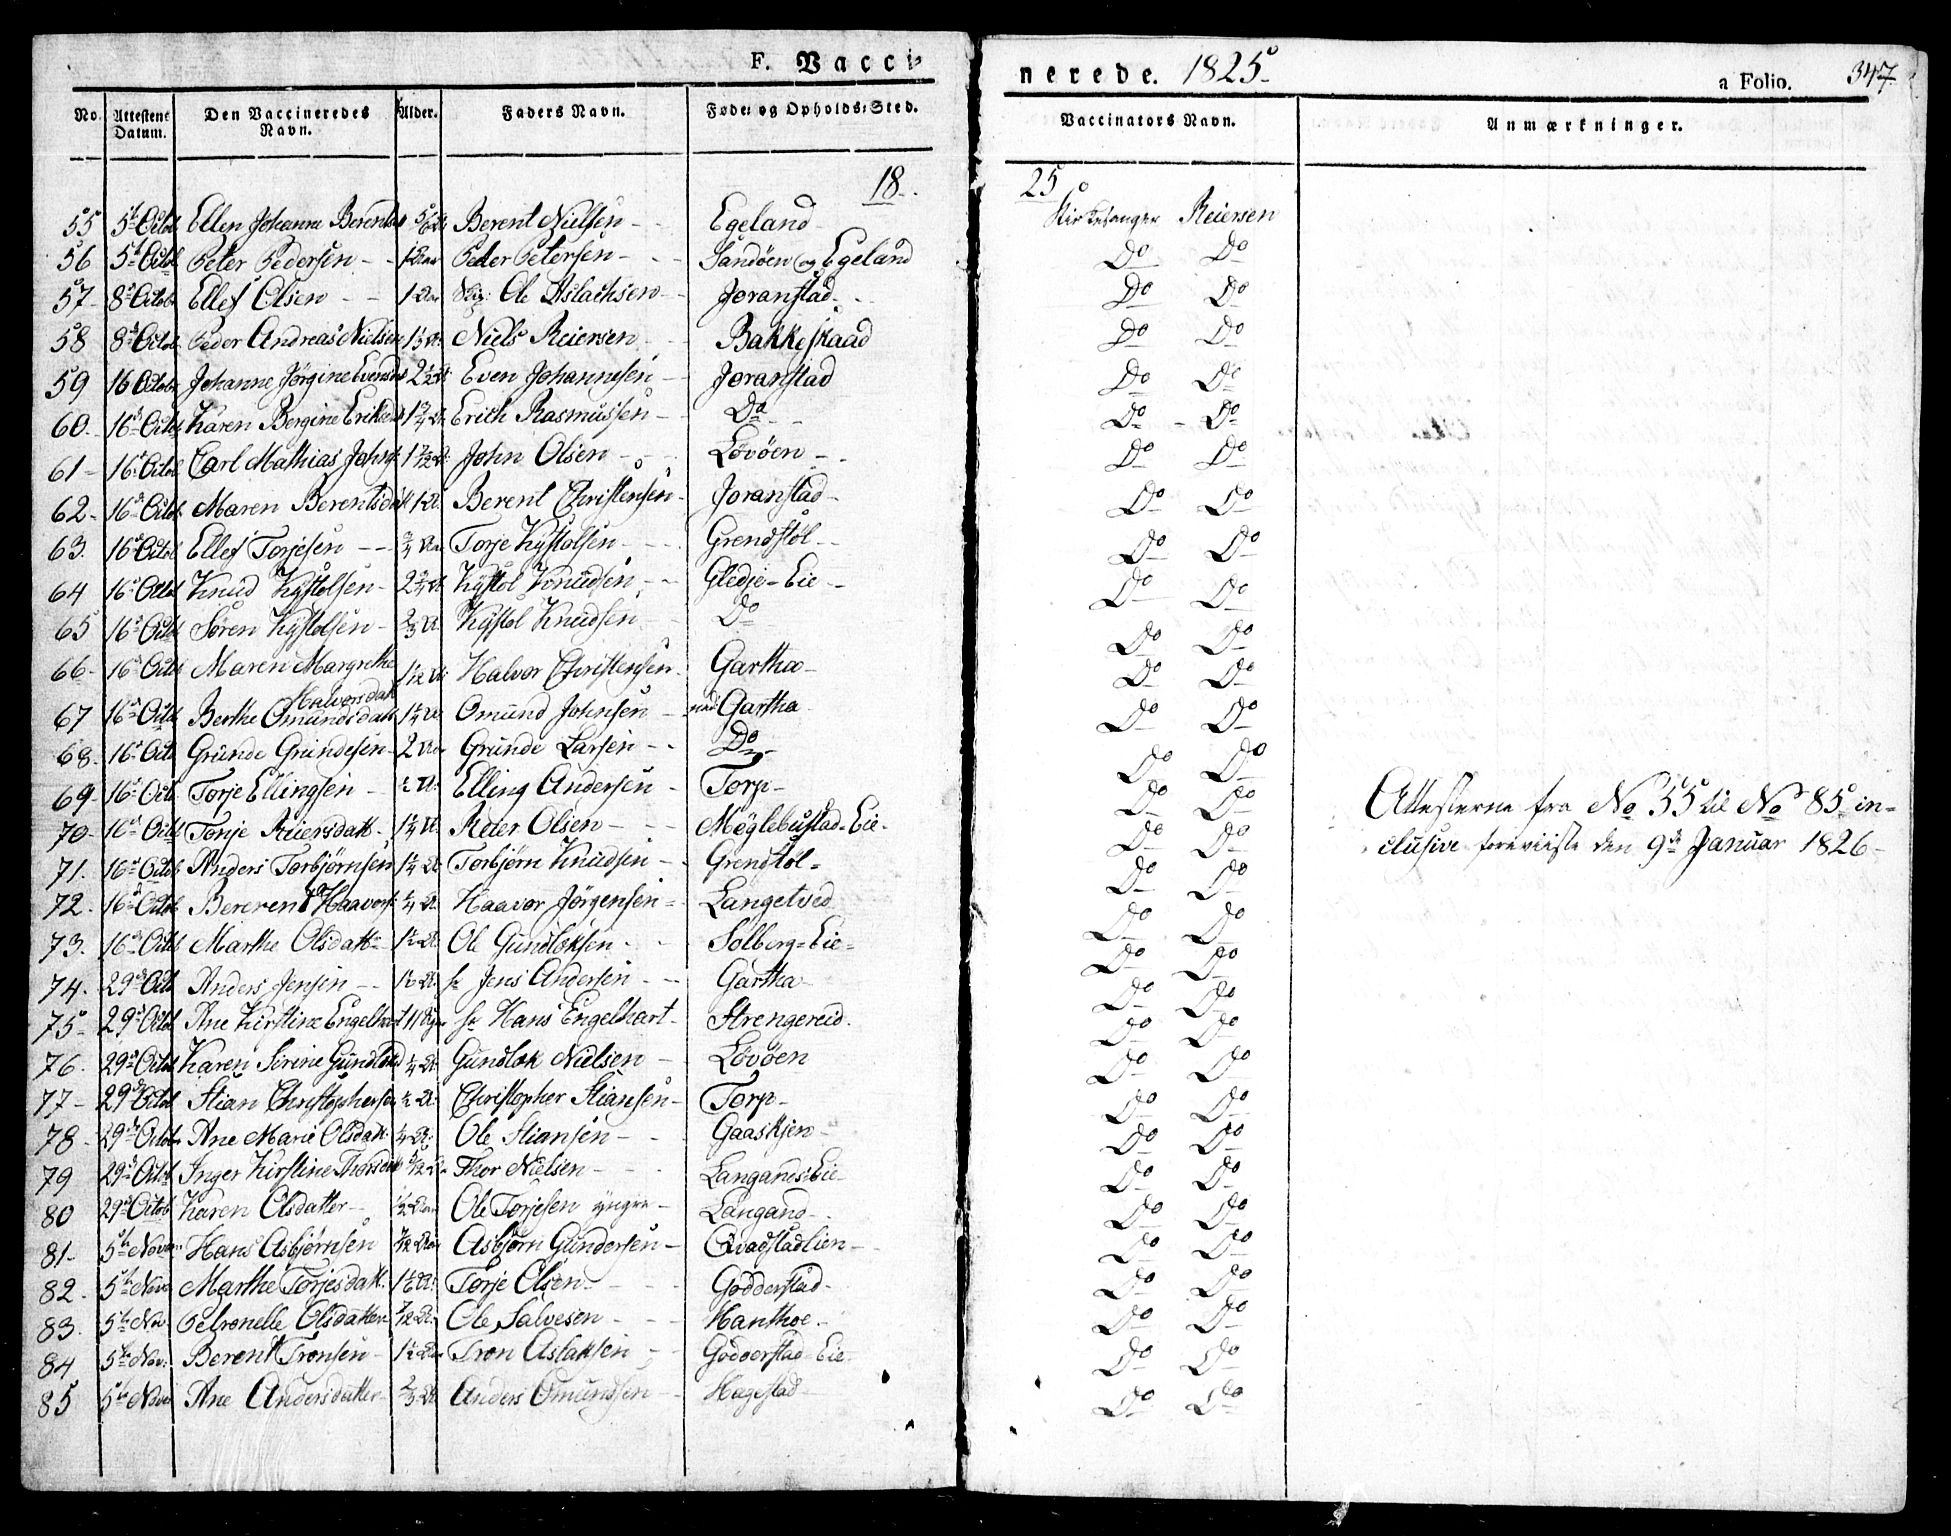 F. Vacci-
nerede. 1825.
a Folio. 347
No. Attestens Datum. Den Vaccineredes Navn. Alder. Faders Navn. Føde- og Opholds-Sted. Vaccinators Navn. Anmærkninger.
18 25
55 5t Octob Ellen Johanne Berentsd Berent Nielsen - Egeland Kirkesanger Reiersen
56 5t Octob Peter Pedersen - 1 Aar Peder Petersen - Sandøen og Egeland Do Do
57 8d Octob Ellef Olsen - 1 Aar Ole Aslachsen Joranstad Do Do
58 8d Octob Peder Andreas Nielsen Niels Reiersen Bakkeskaad Do Do
59 16 Octob Johanne Jørgine Evensd 2½ A. Even Johannesen - Joranstad Do Do
60 16d Octob Karen Bergine Eriksd Erich Rasmussen - Do Do Do
61 16d Octob Carl Mathias Johns John Olsen - Løvøen Do Do
62 16d Octob Maren Berentsdatt 1 A. Berent Christensen Joranstad Do Do
63 16d Octob Ellef Torjesen - ¾ Aar Torje Kystolsen - Grendstøl Do Do
64 16d Octob Knud Kystolsen - 2¾ A. Kystol Knudsen - Gledje-Eie Do Do
65 16d Octob Søren Kystolsen - ⅔ A. Kystol Knudsen Do Do Do
66 16d Octob Maren Margrethe Halvorsdatt Halvor Christensen Gartha Do Do
67 16d Octob Berthe Omundsdatt 1¼ A. Omund Johnsen - Gartha Do Do
68 16d Octob Grunde Grundesen 2 Aar Grunde Larsen - Do Do Do
69 16d Octob Torje Ellingsen - ½ A. Elling Andersen - Torp Do Do
70 16d Octob Torje Reiersdatt 1¼ A. Reier Olsen - Møglebustad-Eie Do Do
71 16d Octob Anders Torbjørnsen 1¼ A. Torbjørn Knudsen - Grendstøl Do Do
72 16d Octob Berevend Haavors ¼ A. Haavor Jørgensen Langetved Do Do
73 16d Octob Marthe Olsdatt 1½ A. Ole Gundloksen - Solberg-Eie Do Do
74 29d Octob Anders Jensen - Jens Andersen - Gartha Do Do
75 29d Octob Ane Kirstine Engelhart Hans Engelhart - Strengereid Do Do
76 29d Octob Karen Sirine Gundloksd ¼ A. Gundlok Nielsen - Løvøen Do Do
77 29d Octob Stian Christophersen ½ A. Christopher Stiansen - Torp Do Do
78 29d Octob Ane Marie Olsdatt ¼ A. Ole Stiansen - Gaaskjen Do Do
79 29d Octob Inger Kirstine Thorsdatt Thor Nielsen - Langands-Eie Do Do
80 29d Octob Karen Olsdatter - ½ Aar Ole Torjesen yngre - Langand Do Do
81 5te Novem Hans Asbjørnsen Asbjørn Gundersen - Qvadstadlien Do Do
82 5te Nov Marthe Torjesdatt 1⅙ A. Torje Olsen Godderstad Do Do
83 5te Nov Petronelle Olsdatter Ole Salvesen - Hanthoe Do Do
84 5te Nov. Berent Tronsen 1½ Aar Tron Aslaksen - Godderstad-Eie Do Do
85 5te Nov Ane Andersdatter ⅔ A. Anders Omundsen - Hagestad Do Do
Attesterne fra No 55 til No 85 in=
clusive foreviiste den 9de Januar 1826